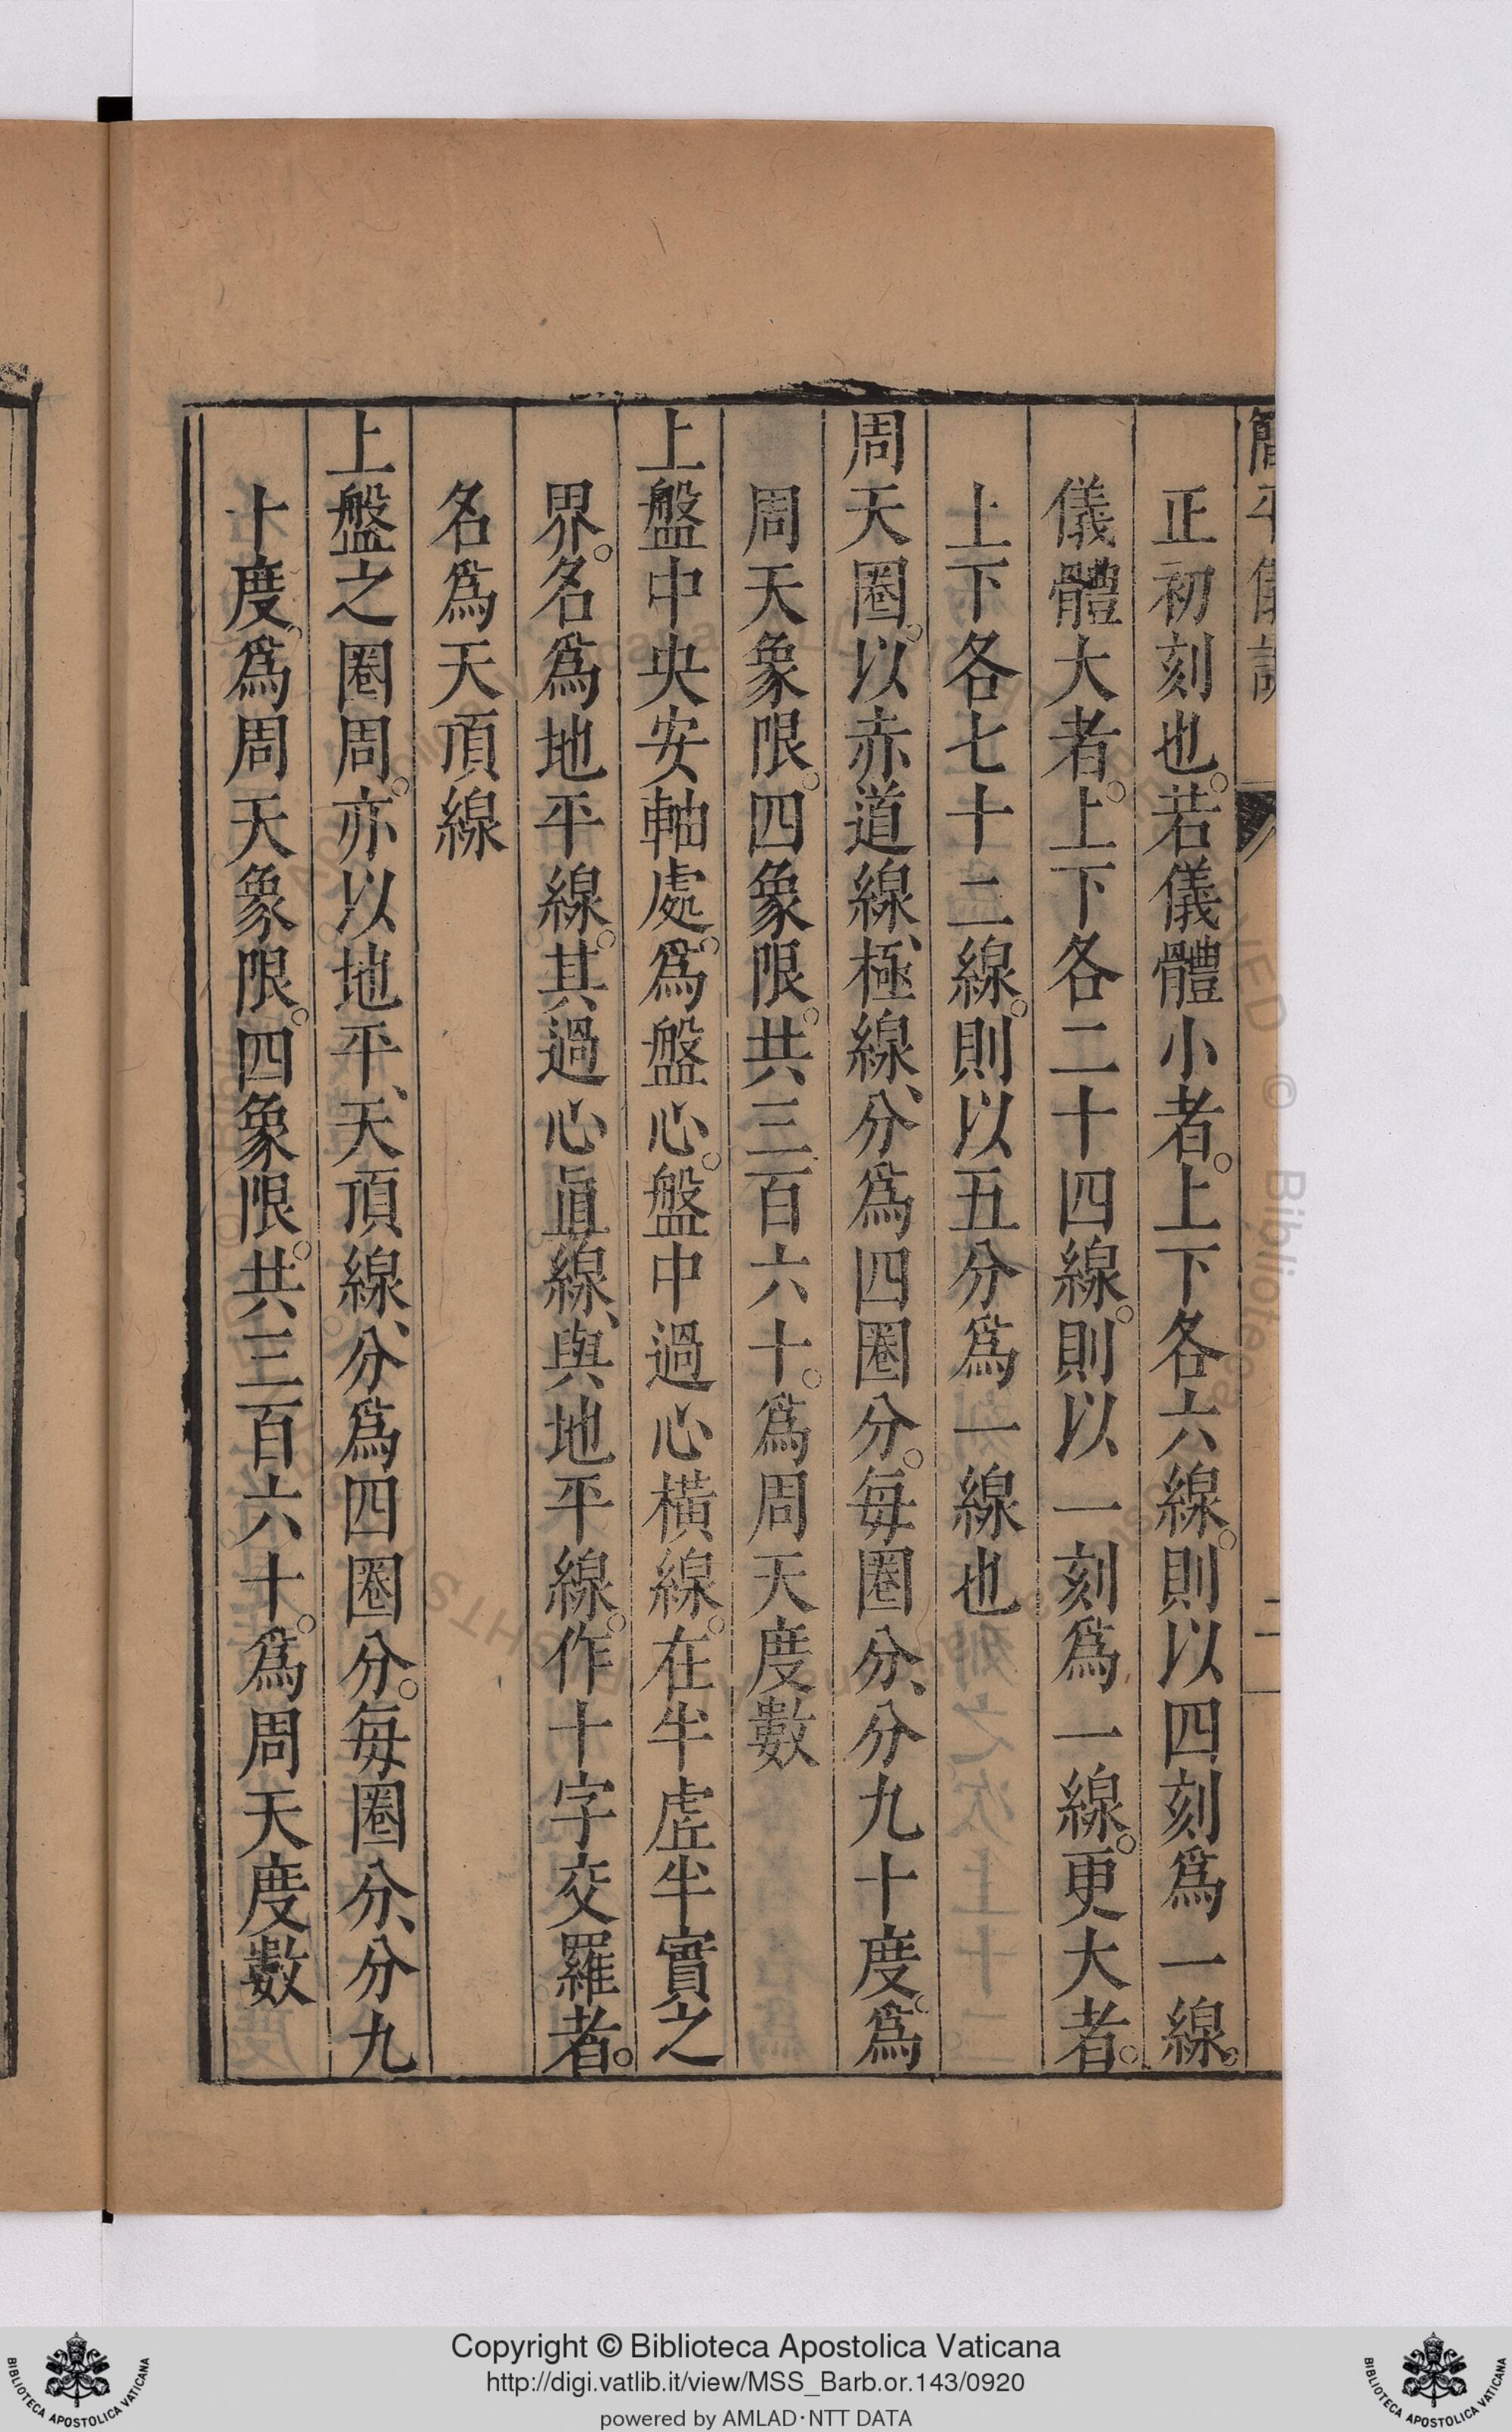 簡平儀說
二
正初刻也。若儀體小者。上下各六線。則以四刻爲一線。
儀體大者。上下各二十四線。則以一刻爲一線。更大者。
上下各七十二線。則以五分爲一線也
周天圈。以赤道線、極線、分爲四圈分。每圈分、分九十度。爲
周天象限。四象限。共三百六十。爲周天度數
上盤中央安軸處。爲盤心。盤中過心橫線。在半虛半實之
界。名爲地平線。其過心直線、與地平線。作十字交羅者。
名爲天頂線
上盤之圈周。亦以地平、天頂線、分爲四圈分。每圈分、分九
十度。爲周天象限。四象限。共三百六十。爲周天度數
Copyright © Biblioteca Apostolica Vaticana
http://digi.vatlib.it/view/MSS_Barb.or.143/0920
powered by AMLAD·NTT DATA
BIBLIOTECA APOSTOLICA VATICANA
BIBLIOTECA APOSTOLICA VATICANA